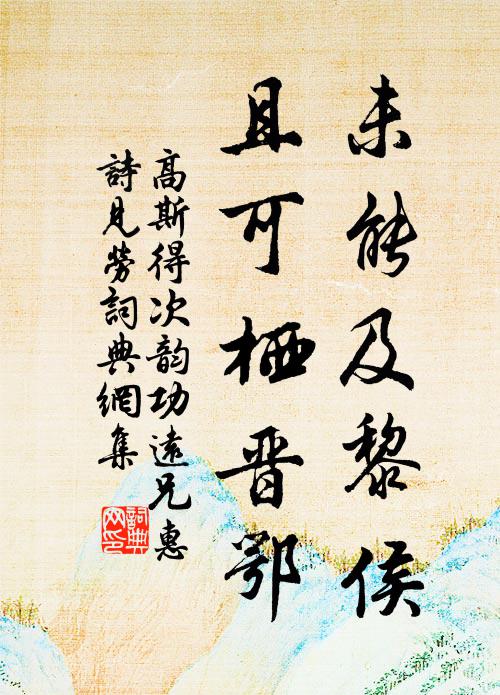 未能及黎侯
且可栖晋鄂
高斯得次韵功遠兄惠
詩見勞詞典網集
詞典网集